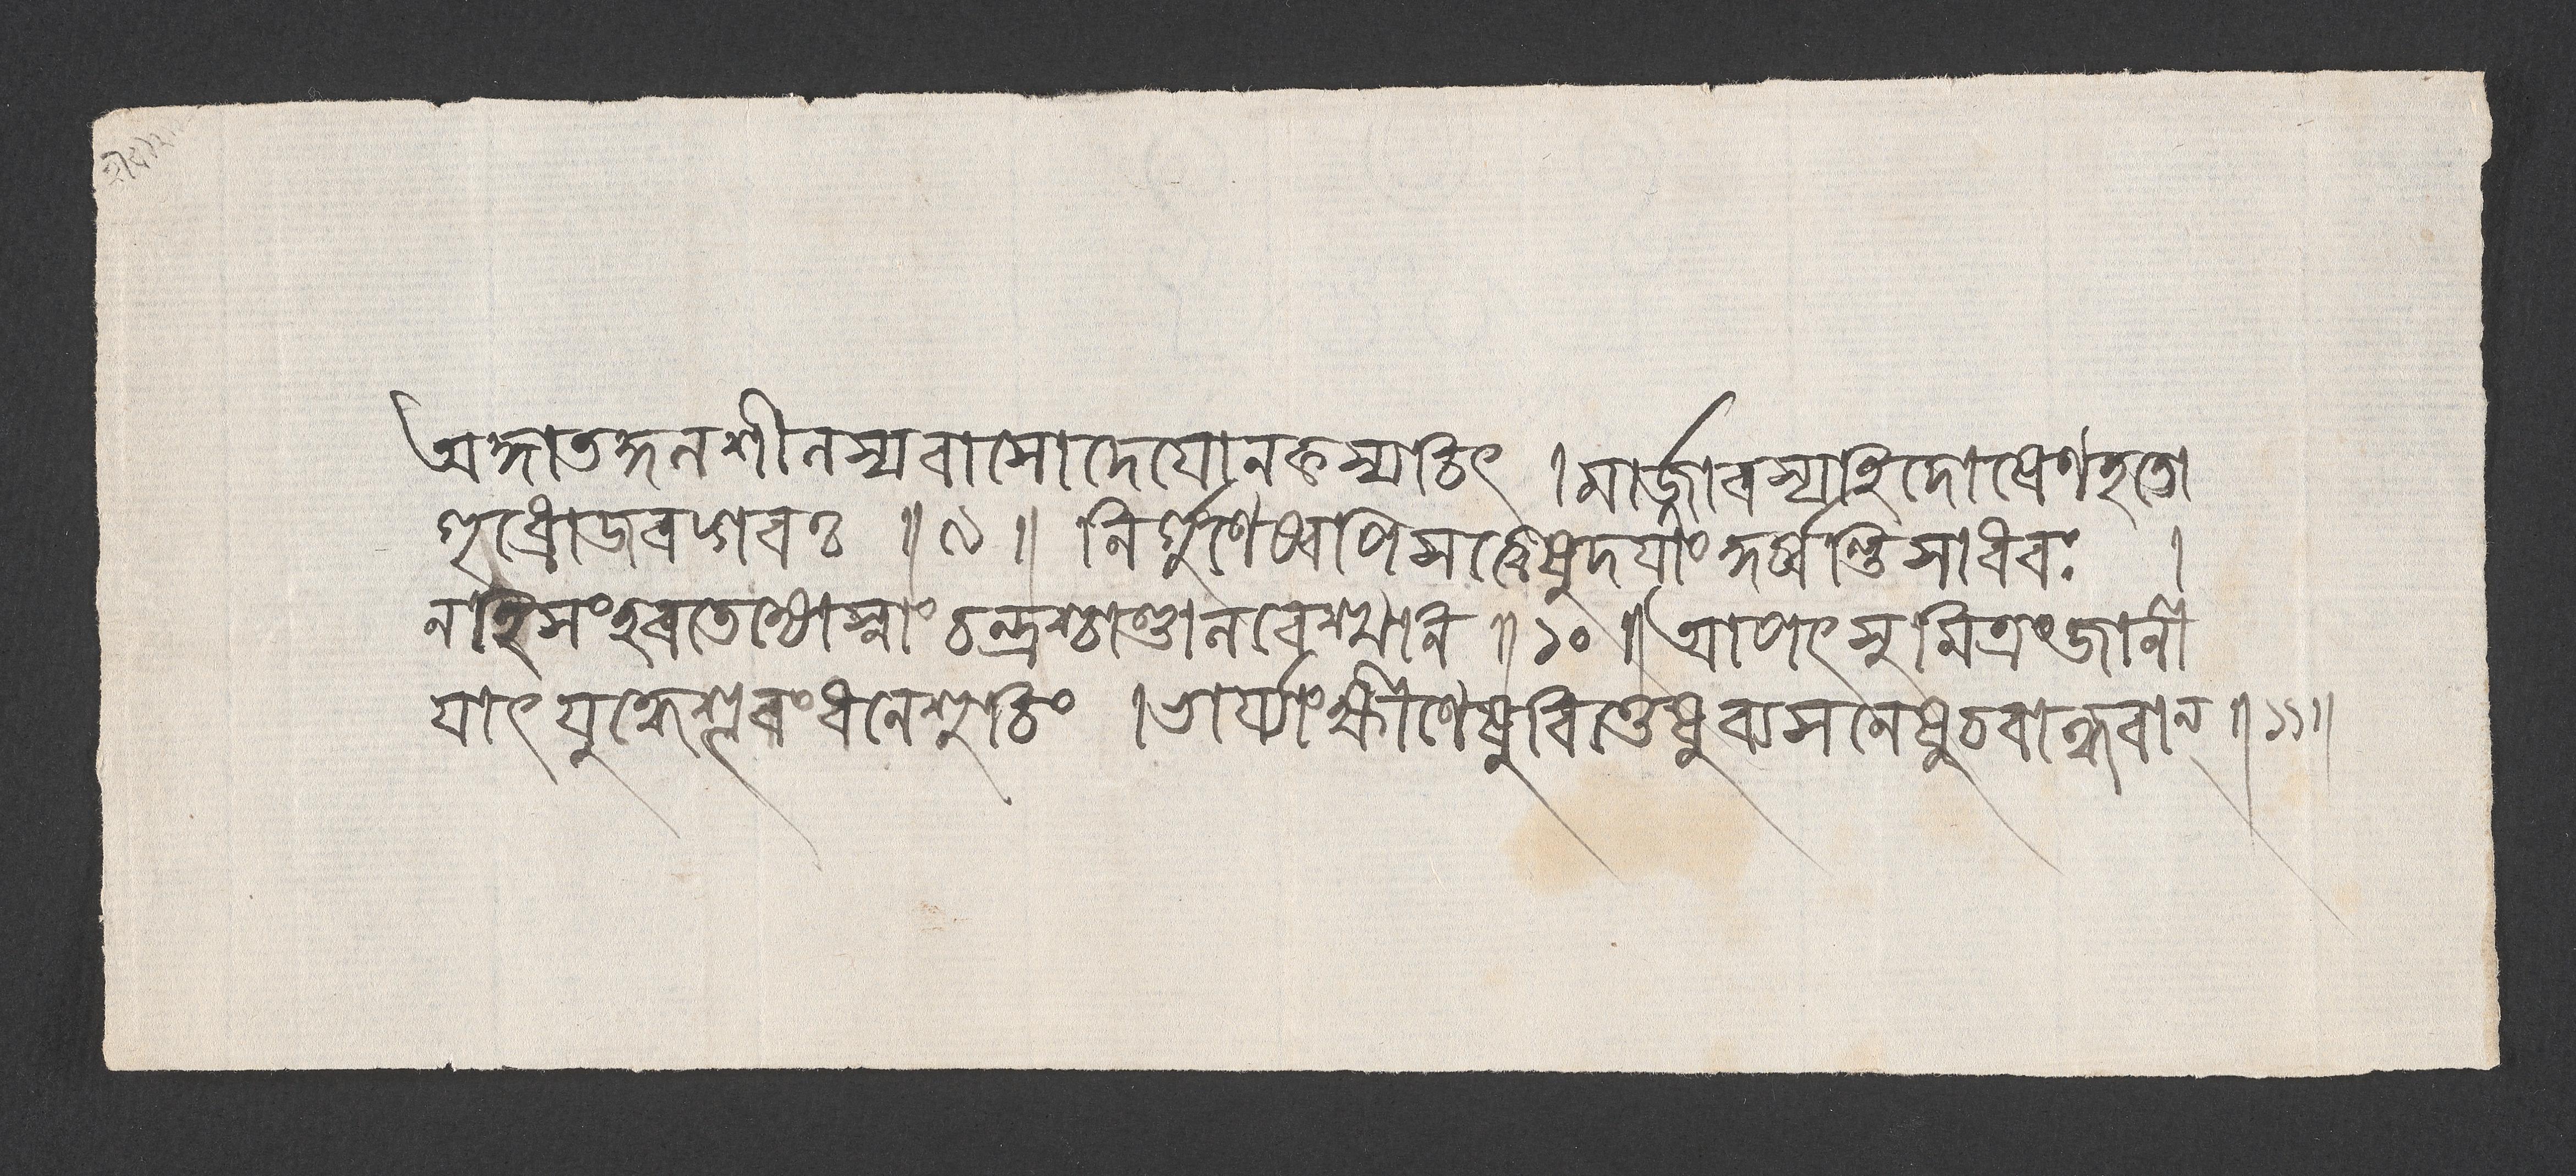 অজ্ঞাতকুলশীলস্য বাসো দেযো ন কস্যচিৎ । মার্জ্জাৰস্য হি দোষেণ হতো
গৃধ্ৰো জৰদ্গবঃ ॥ ৯ ॥ নির্গুণেষ্বপি সত্ত্বেষু দযাং কুর্ব্বন্তি সাধবঃ ।
ন হি সংহৰতে জ্যোৎস্নাং চন্দ্ৰশ্চাণ্ডালবেশ্মনি ॥ ১০ ॥ আপৎসু মিত্ৰং জানী
যাৎ যুদ্ধে শূৰং ধনে শুচিং । ভার্য্যাং ক্ষীণেষু বিত্তেষু ব্যসনেষু চ বান্ধবান্ ॥ ১১ ॥